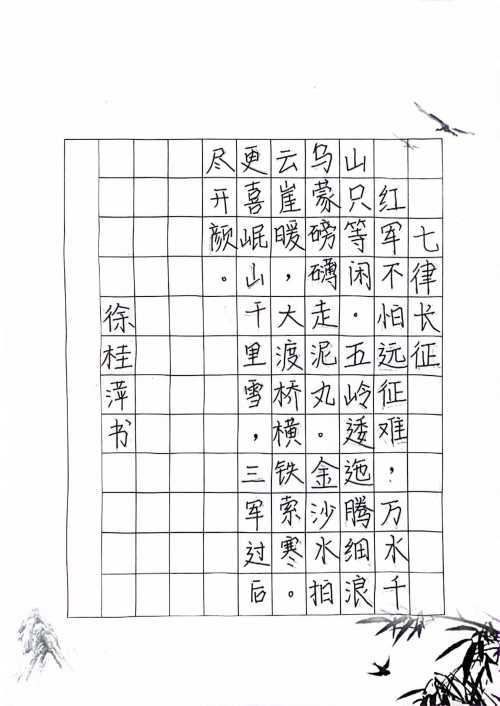 七律长征
红军不怕远征难，万水千
山只等闲。五岭逶迤腾细浪
乌蒙磅礴走泥丸。金沙水拍
云崖暖，大渡桥横铁索寒。
更喜岷山千里雪，三军过后
尽开颜。
徐桂萍书